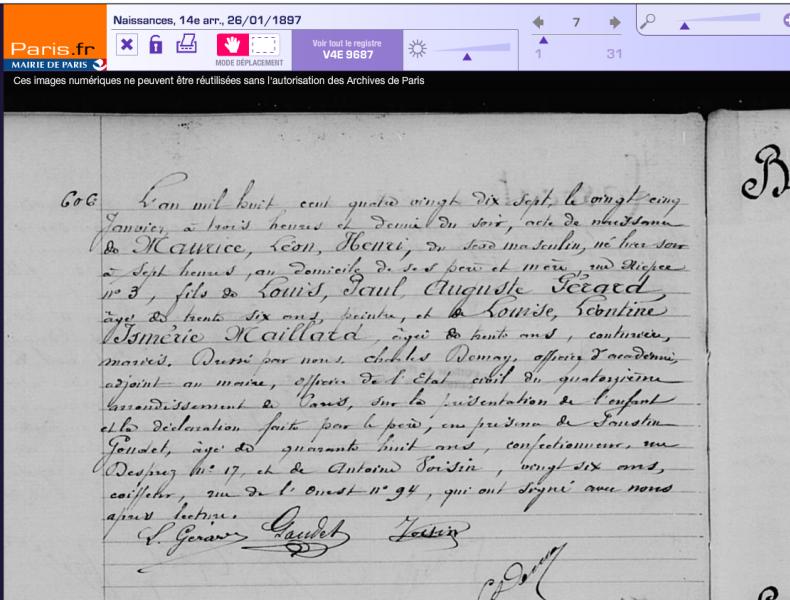 Naissances, 14e arr., 26/01/1897
7
Paris.fr
MAIRIE DE PARIS
MODE DÉPLACEMENT
Voir tout le registre
V4E 9687
1
31
Ces images numériques ne peuvent être réutilisées sans l'autorisation des Archives de Paris
606
L'an mil huit cent quatre vingt dix sept, le vingt cinq
Janvier, à trois heures et demie du soir, acte de naissance
de Maurice, Léon, Henri, du sexe masculin, né hier soir
à sept heures, au domicile de ses père et mère, rue Niepce
n° 3, fils de Louis, Paul, Auguste Gérard,
âgé de trente six ans, peintre, et de Louise, Léontine
Ismérie Maillard, âgée de trente ans, couturière,
mariés. Dressé par nous, Charles Demay, officier d'académie,
adjoint au maire, officier de l'Etat civil du quatorzième
arrondissement de Paris, sur la présentation de l'enfant
et la déclaration faite par le père, en présence de Faustin
Goudet, âgé de quarante huit ans, confectionneur, rue
Desprez n° 17, et de Antoine Voisin, vingt six ans,
coiffeur, rue de l'Ouest n° 94, qui ont signé avec nous
après lecture.
L. Gérard Gaudet Voisin
B